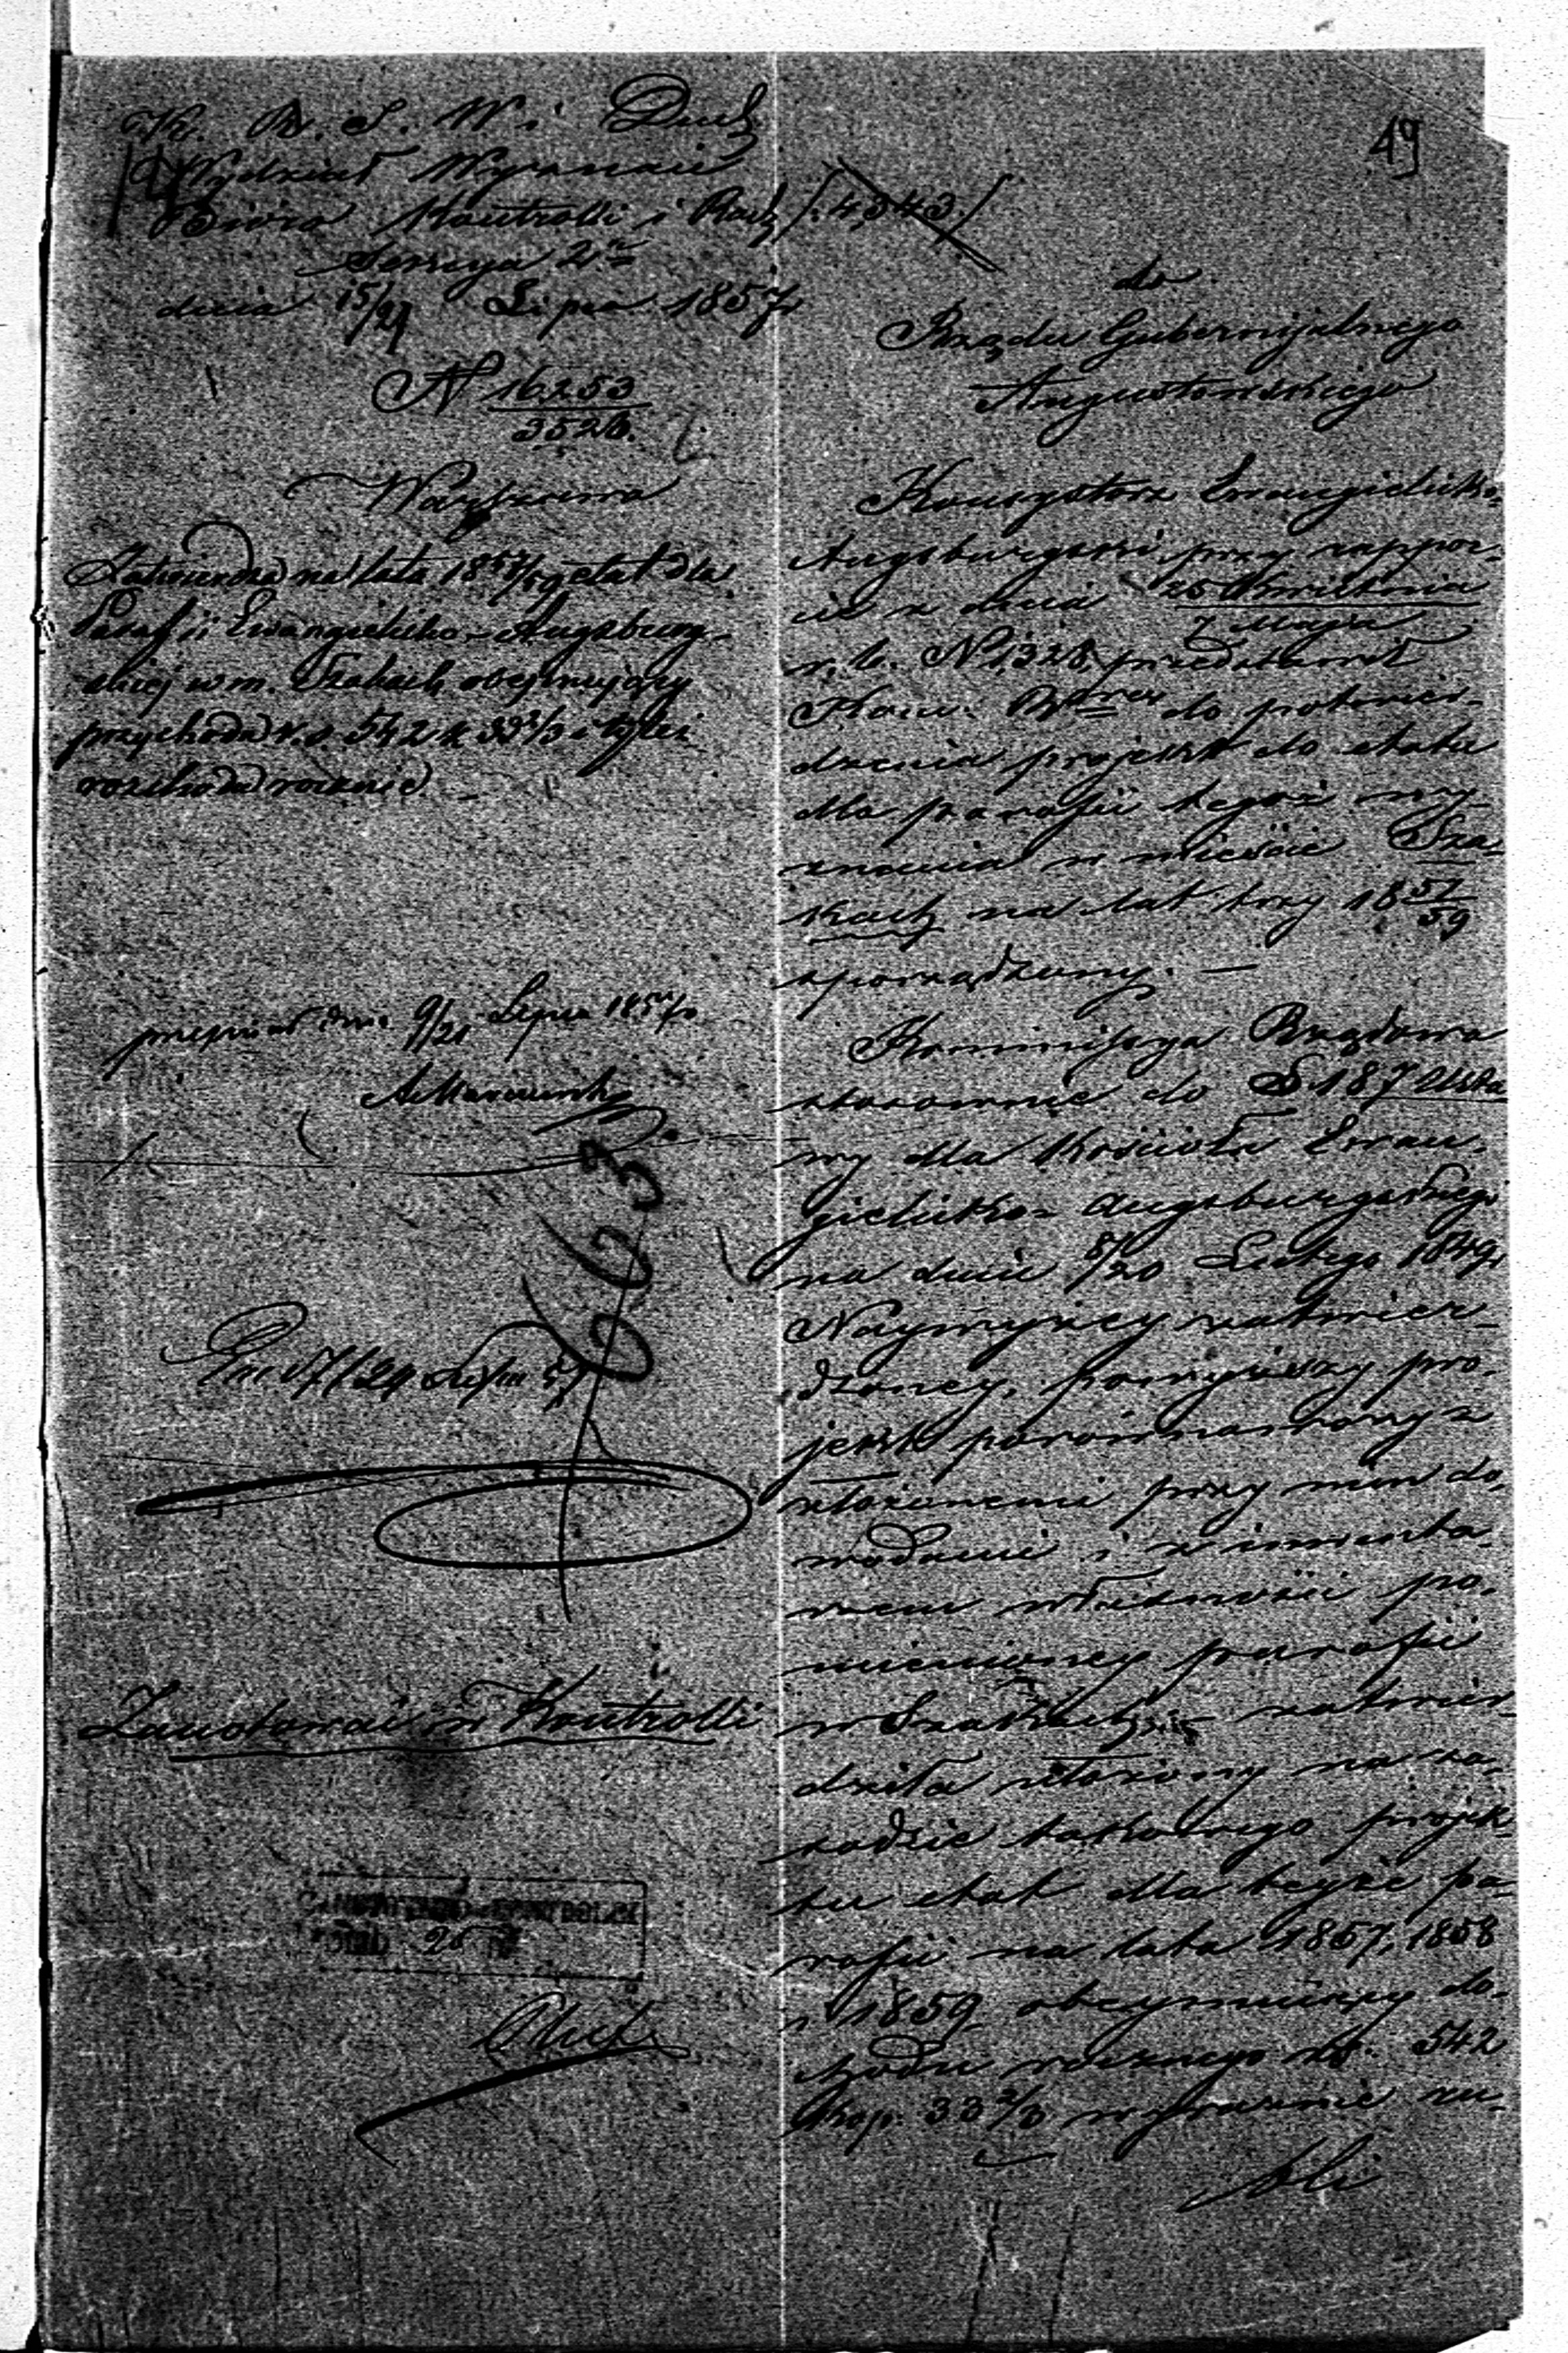 K. R. S. W. i Duch
Wydział Wyznań
Biuro Kontrolli i Rach /:4543:/
Sekcya 2a
dnia 15/27 Lipca 1857 r.
N 16253/3526.
Warszawa
Zatwierdza na lata 1857/59 etat dla
Parafii Ewangielicko-Augsburg-
skiej w m. Szakach obejmujący
przychodu r. s. 542 k 33 2/3 i tyleż
rozchodu rocznie
przepisał dnia 9/21 Lipca 1857 r.
6663
Zanotować w Kontrolli
49
do
Rządu Gubernijalnego
Augustowskiego
Konsystorz Ewangielicko-
Augsburgski przy rappor-
cie z dnia 25 Kwietnia/7 Maja
r. b. N 1328 przedstawił
Kom. Rządowej do potwier-
dzenia projekt do etatu
dla parafii tegoż wy-
znania w mieście Sza-
kach na lat trzy 1857/59
sporządzony. —
Kommissya Rządowa
stosownie do § 187 Usta-
wy dla Kościoła Ewan-
gielicko-Augsburgskiego
na dniu 8/20 Lutego 1849 r.
Naywyżey zatwier-
dzoney, powyższy pro-
jekt porównawszy z
złożonemi przy nim do-
wodami i z inwenta-
rzem własności po-
mienioney parafii
w Szakach, zatwier-
dziła ułożony na za-
sadzie takowego projek-
tu etat dla teyże pa-
rafii na lata 1857, 1858
i 1859 obeymujący do-
chodu rocznego rs. 542
kop. 33 2/3 wyraźnie ru-
bli